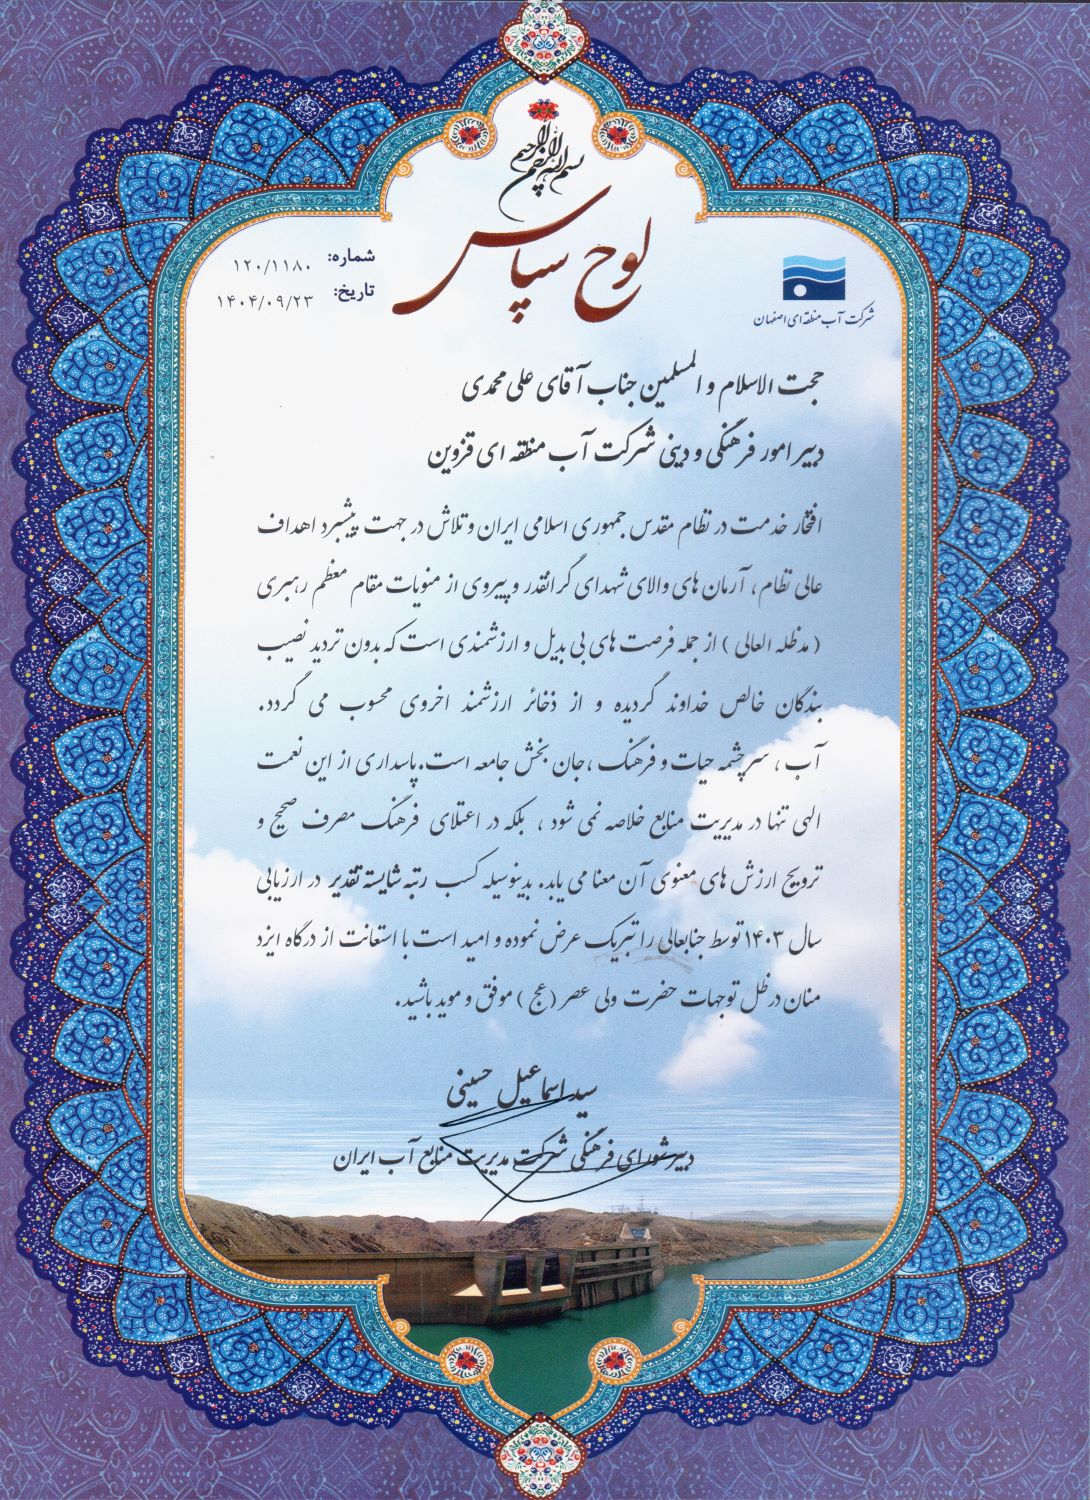 بسم الله الرحمن الرحیم
لوح سپاس
شماره: ۱۲۰/۱۱۸۰
تاریخ: ۱۴۰۴/۰۹/۲۳
شرکت آب منطقه ای اصفهان
حجت الاسلام و المسلمین جناب آقای علی محمدی
دبیر امور فرهنگی و دینی شرکت آب منطقه ای قزوین
افتخار خدمت در نظام مقدس جمهوری اسلامی ایران و تلاش در جهت پیشبرد اهداف
عالی نظام، آرمان های والای شهدای گرانقدر و پیروی از منویات مقام معظم رهبری
( مدظله العالی ) از جمله فرصت های بی بدیل و ارزشمندی است که بدون تردید نصیب
بندگان خالص خداوند گردیده و از ذخائر ارزشمند اخروی محسوب می گردد.
آب ، سرچشمه حیات و فرهنگ ،جان بخش جامعه است. پاسداری از این نعمت
الهی تنها در مدیریت منابع خلاصه نمی شود ، بلکه در اعتلای فرهنگ مصرف صحیح و
ترویج ارزش های معنوی آن معنا می یابد. بدینوسیله کسب رتبه شایسته تقدیر در ارزیابی
سال ۱۴۰۳ توسط جنابعالی را تبریک عرض نموده و امید است با استعانت از درگاه ایزد
منان در ظل توجهات حضرت ولی عصر (عج ) موفق و موید باشید.
سید اسماعیل حسینی
دبیر شورای فرهنگی شرکت مدیریت منابع آب ایران